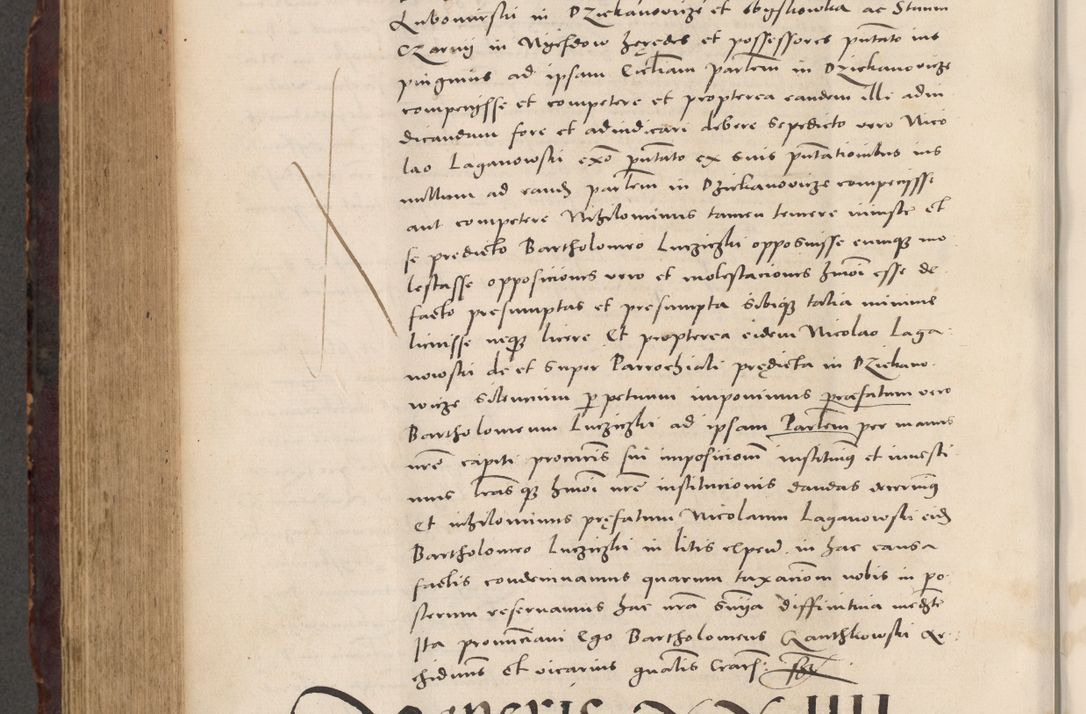 Lubomirski in Dziekanowicze et Obyslowka ac Stanin
CZarnij in Nyesdow heredes et possessores putato ius
pinguius ad ipsam Ecclīam parlem in Dziekanovicze
compenisse et competere et propterea eandem illi adiu
dicandum fore et adiudicari debere sepedicto vero Nico
lao Laganowski exō putato ex suis putationibus ius
nullum ad eandz parlem in Dziekanovicze compenisse
aut competere Nihilominus tamen temere iniuste et
se predicto Bartholomeo Lucziczki opposuisse eumqz mo
lestasse oppositiones vero et molestaciones hmōi esse de
facto presumptas et presumpta sibiqz talia minime
licuisse neqz licere Et propterea eidem Nicolao Laga
nowski de et super Parrochiali predicta in Dziekano
wicze silencium perpetuum imponimus præfatum vero
Bartholomeum Lucziczki ad ipsam Parlem per manus
nrē capiti procuris sui imposicionē instituimus et inuesti
mus lrasqz hmōi nrē institucionis dandas decernimus
Et nihilominus prefatum Nicolaum Laganowski eidz
Bartholomeo Lucziczki in litis expens. in hac causa
factis condemnamus quarum taxationem nobis in po
sterum reservamus hac nrā snīa diffinitiva medte
Ita pronunciavi Ego Bartholomeus Ganthkowski Ar
chidnus Et vicarius gnalis Cracs.
Veneris XXIIII